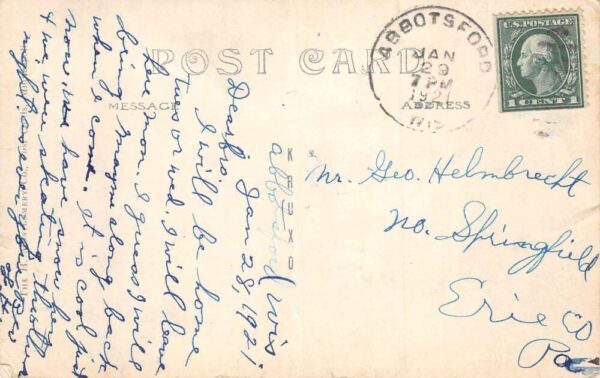 POST CARD
MESSAGE
ADDRESS
ABBOTSFORD
JAN
29
7 PM
1921
WIS.
U.S. POSTAGE
1 CENT 1
Mr. Geo. Helmbrecht
No. Springfield
Erie Co
Pa
Abbotsford Wis
Jan 28, 1921
Dear Bro.
I will be home
Tues or wed. I will leave
here mon. I guess I will
bring Mayme along back
when I come. It is cool just
now we have snow
& we were skating
night